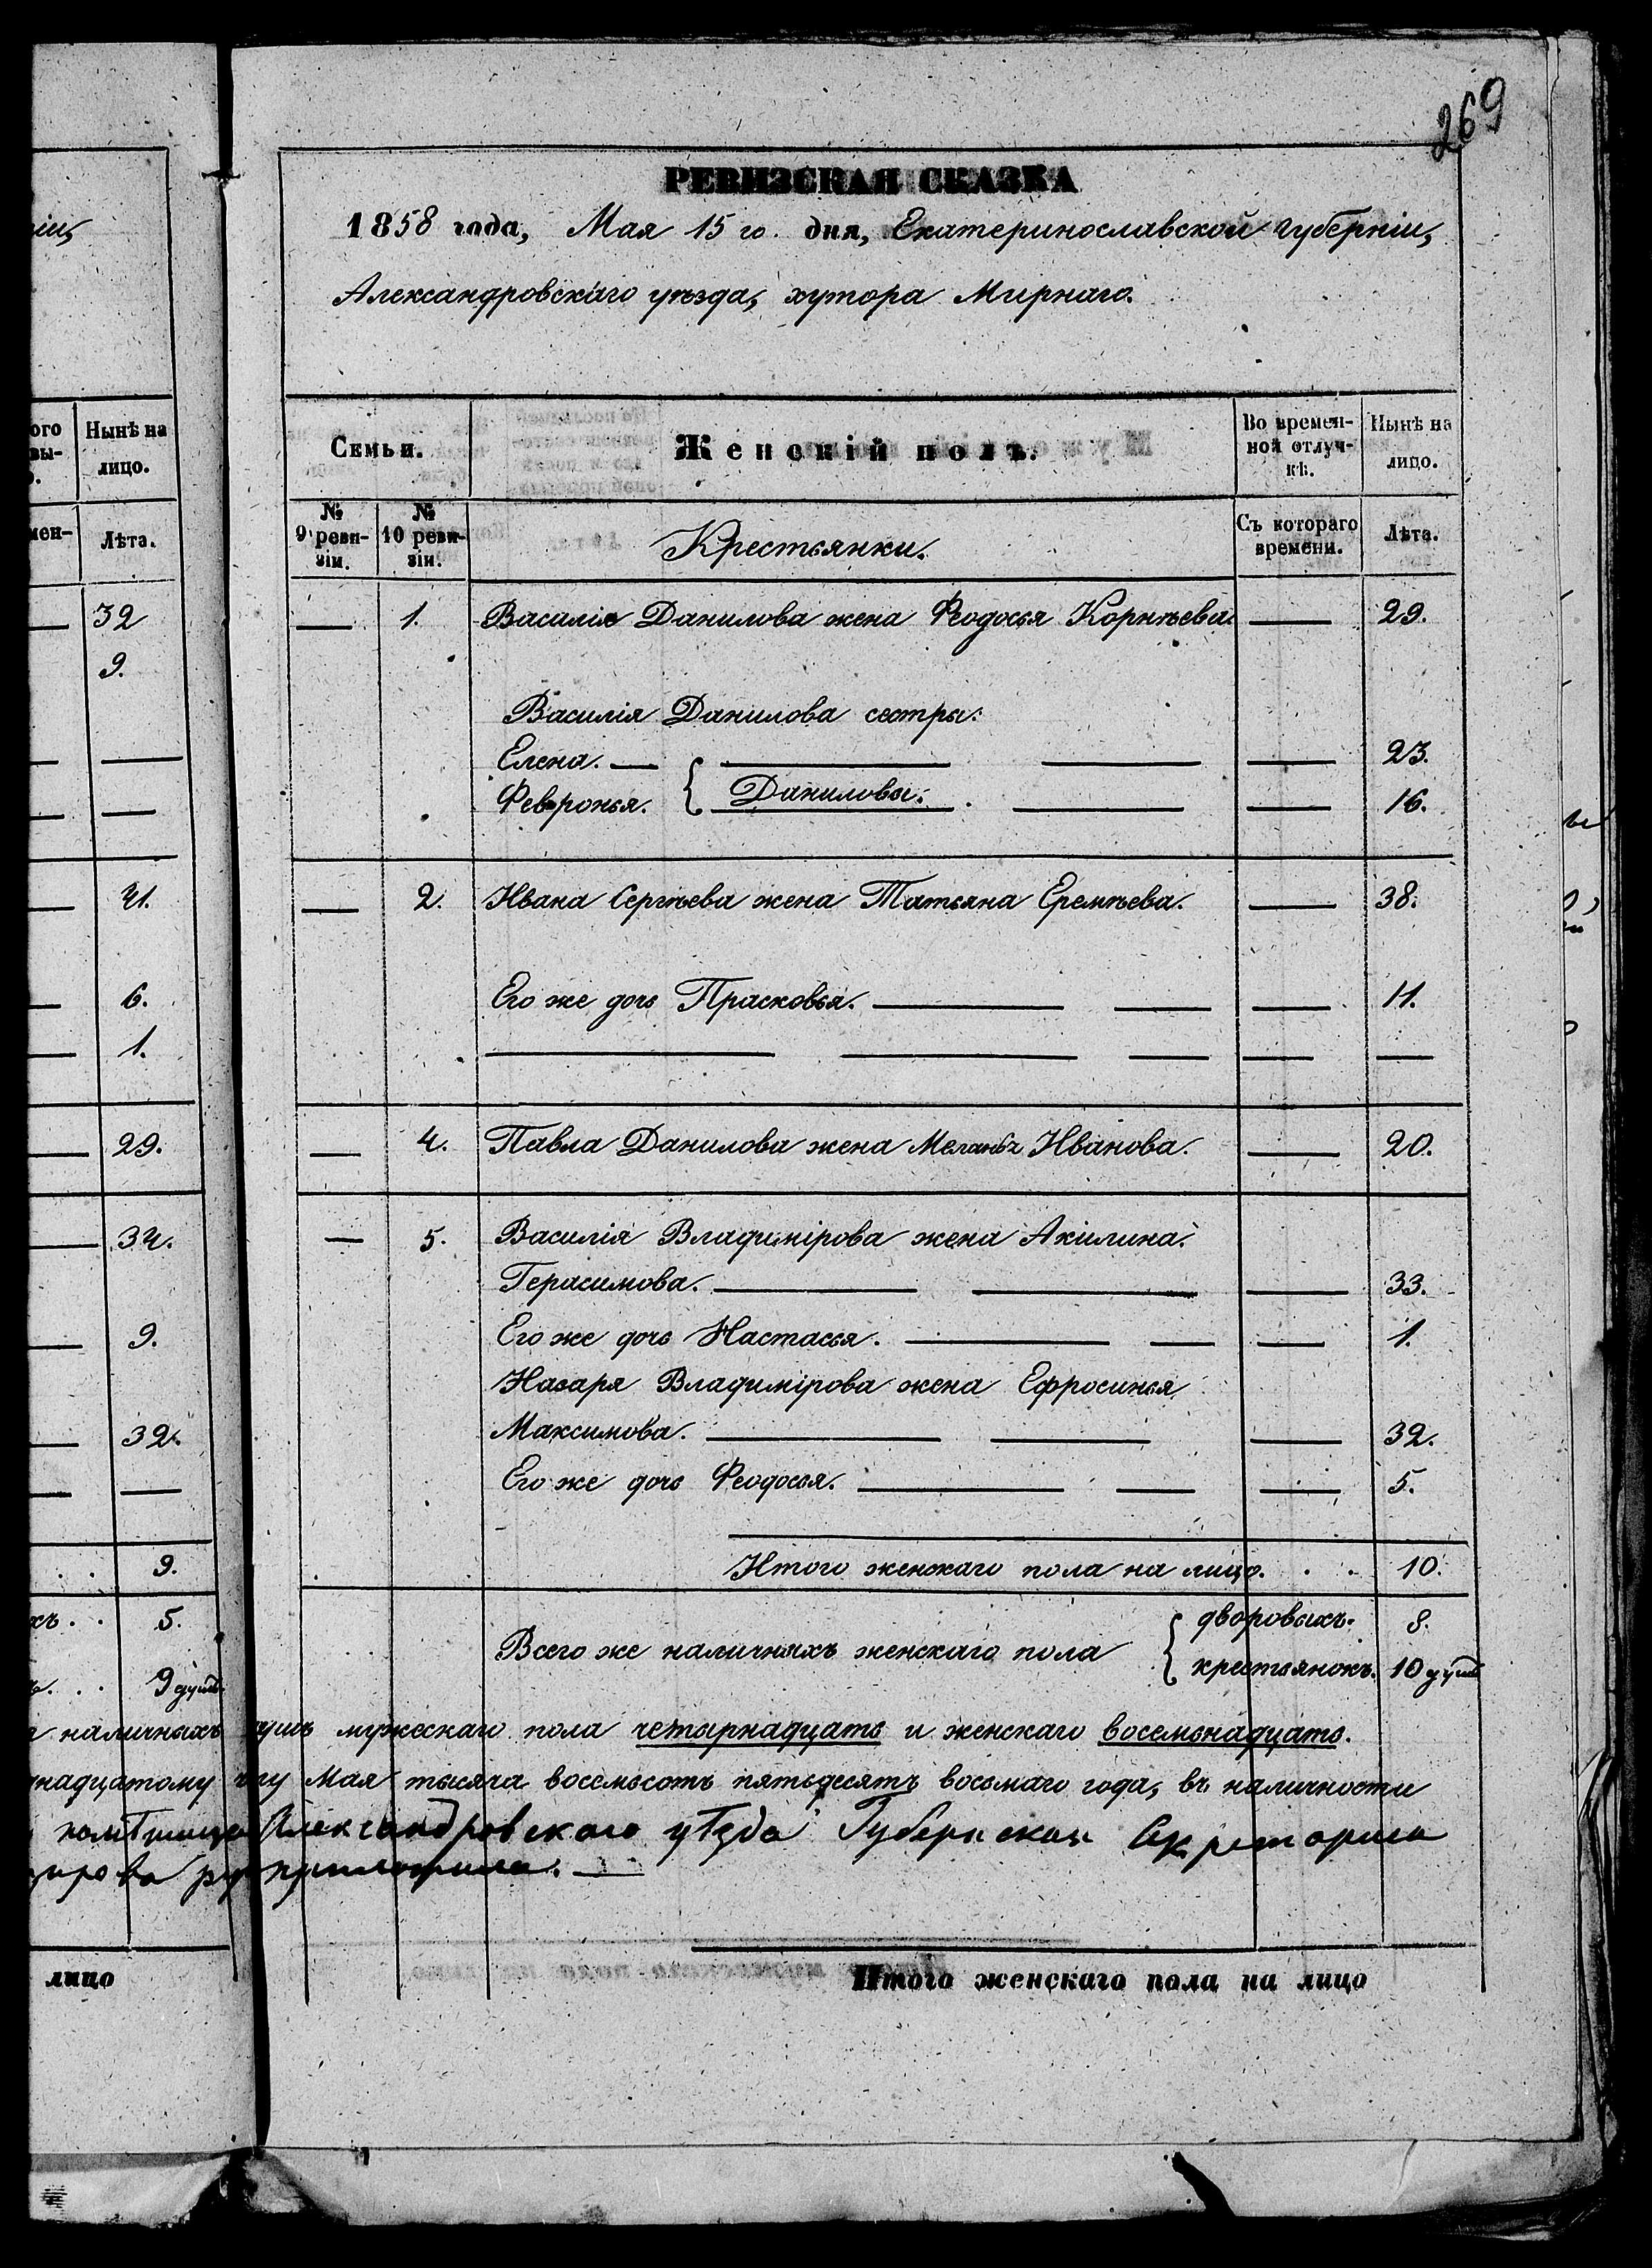 269
РЕВИЗСКАЯ СКАЗКА
1858 года, Мая 15 го. дня, Екатеринославской губерніи,
Александровскаго уѣзда, хутора Мирнаго.
Семьи.
Женскій полъ.
Во времен-
ной отлуч-
кѣ.
Нынѣ на
лицо.
№
9 реви-
зіи.
№
10 реви-
зіи.
Крестьянки.
Съ котораго
времени.
Лѣта.
1. Василія Данилова жена Феодосья Корнѣева. 29.
Василія Данилова сестры:
Елена. 23.
Февронья. Даниловы. 16.
2. Ивана Сергѣева жена Татьяна Еремѣева. 38.
Его же дочь Прасковья. 11.
4. Павла Данилова жена Меланья Иванова. 20.
5. Василія Владимірова жена Акилина
Герасимова. 33.
Его же дочь Настасья. 1.
Назаря Владимірова жена Ефросинья
Максимова. 32.
Его же дочь Феодосья. 5.
Итого женскаго пола на лицо. 10.
Всего же наличныхъ женскаго пола
дворовыхъ. 8.
крестьянокъ. 10 душъ
наличныхъ душъ мужескаго пола четырнадцать и женскаго восемьнадцать.
Мая тысяча восемьсотъ пятьдесятъ восьмаго года, въ наличности
Александровскаго уѣзда Губернская Секретарша
приложила.
Итого женскаго пола на лицо
ніи,
ого
вы-
Нынѣ на
лицо.
мен-
Лѣта.
32
9.
41.
6.
1.
29.
34.
9.
32.
9.
хъ . . 5.
9 душъ.
лицо